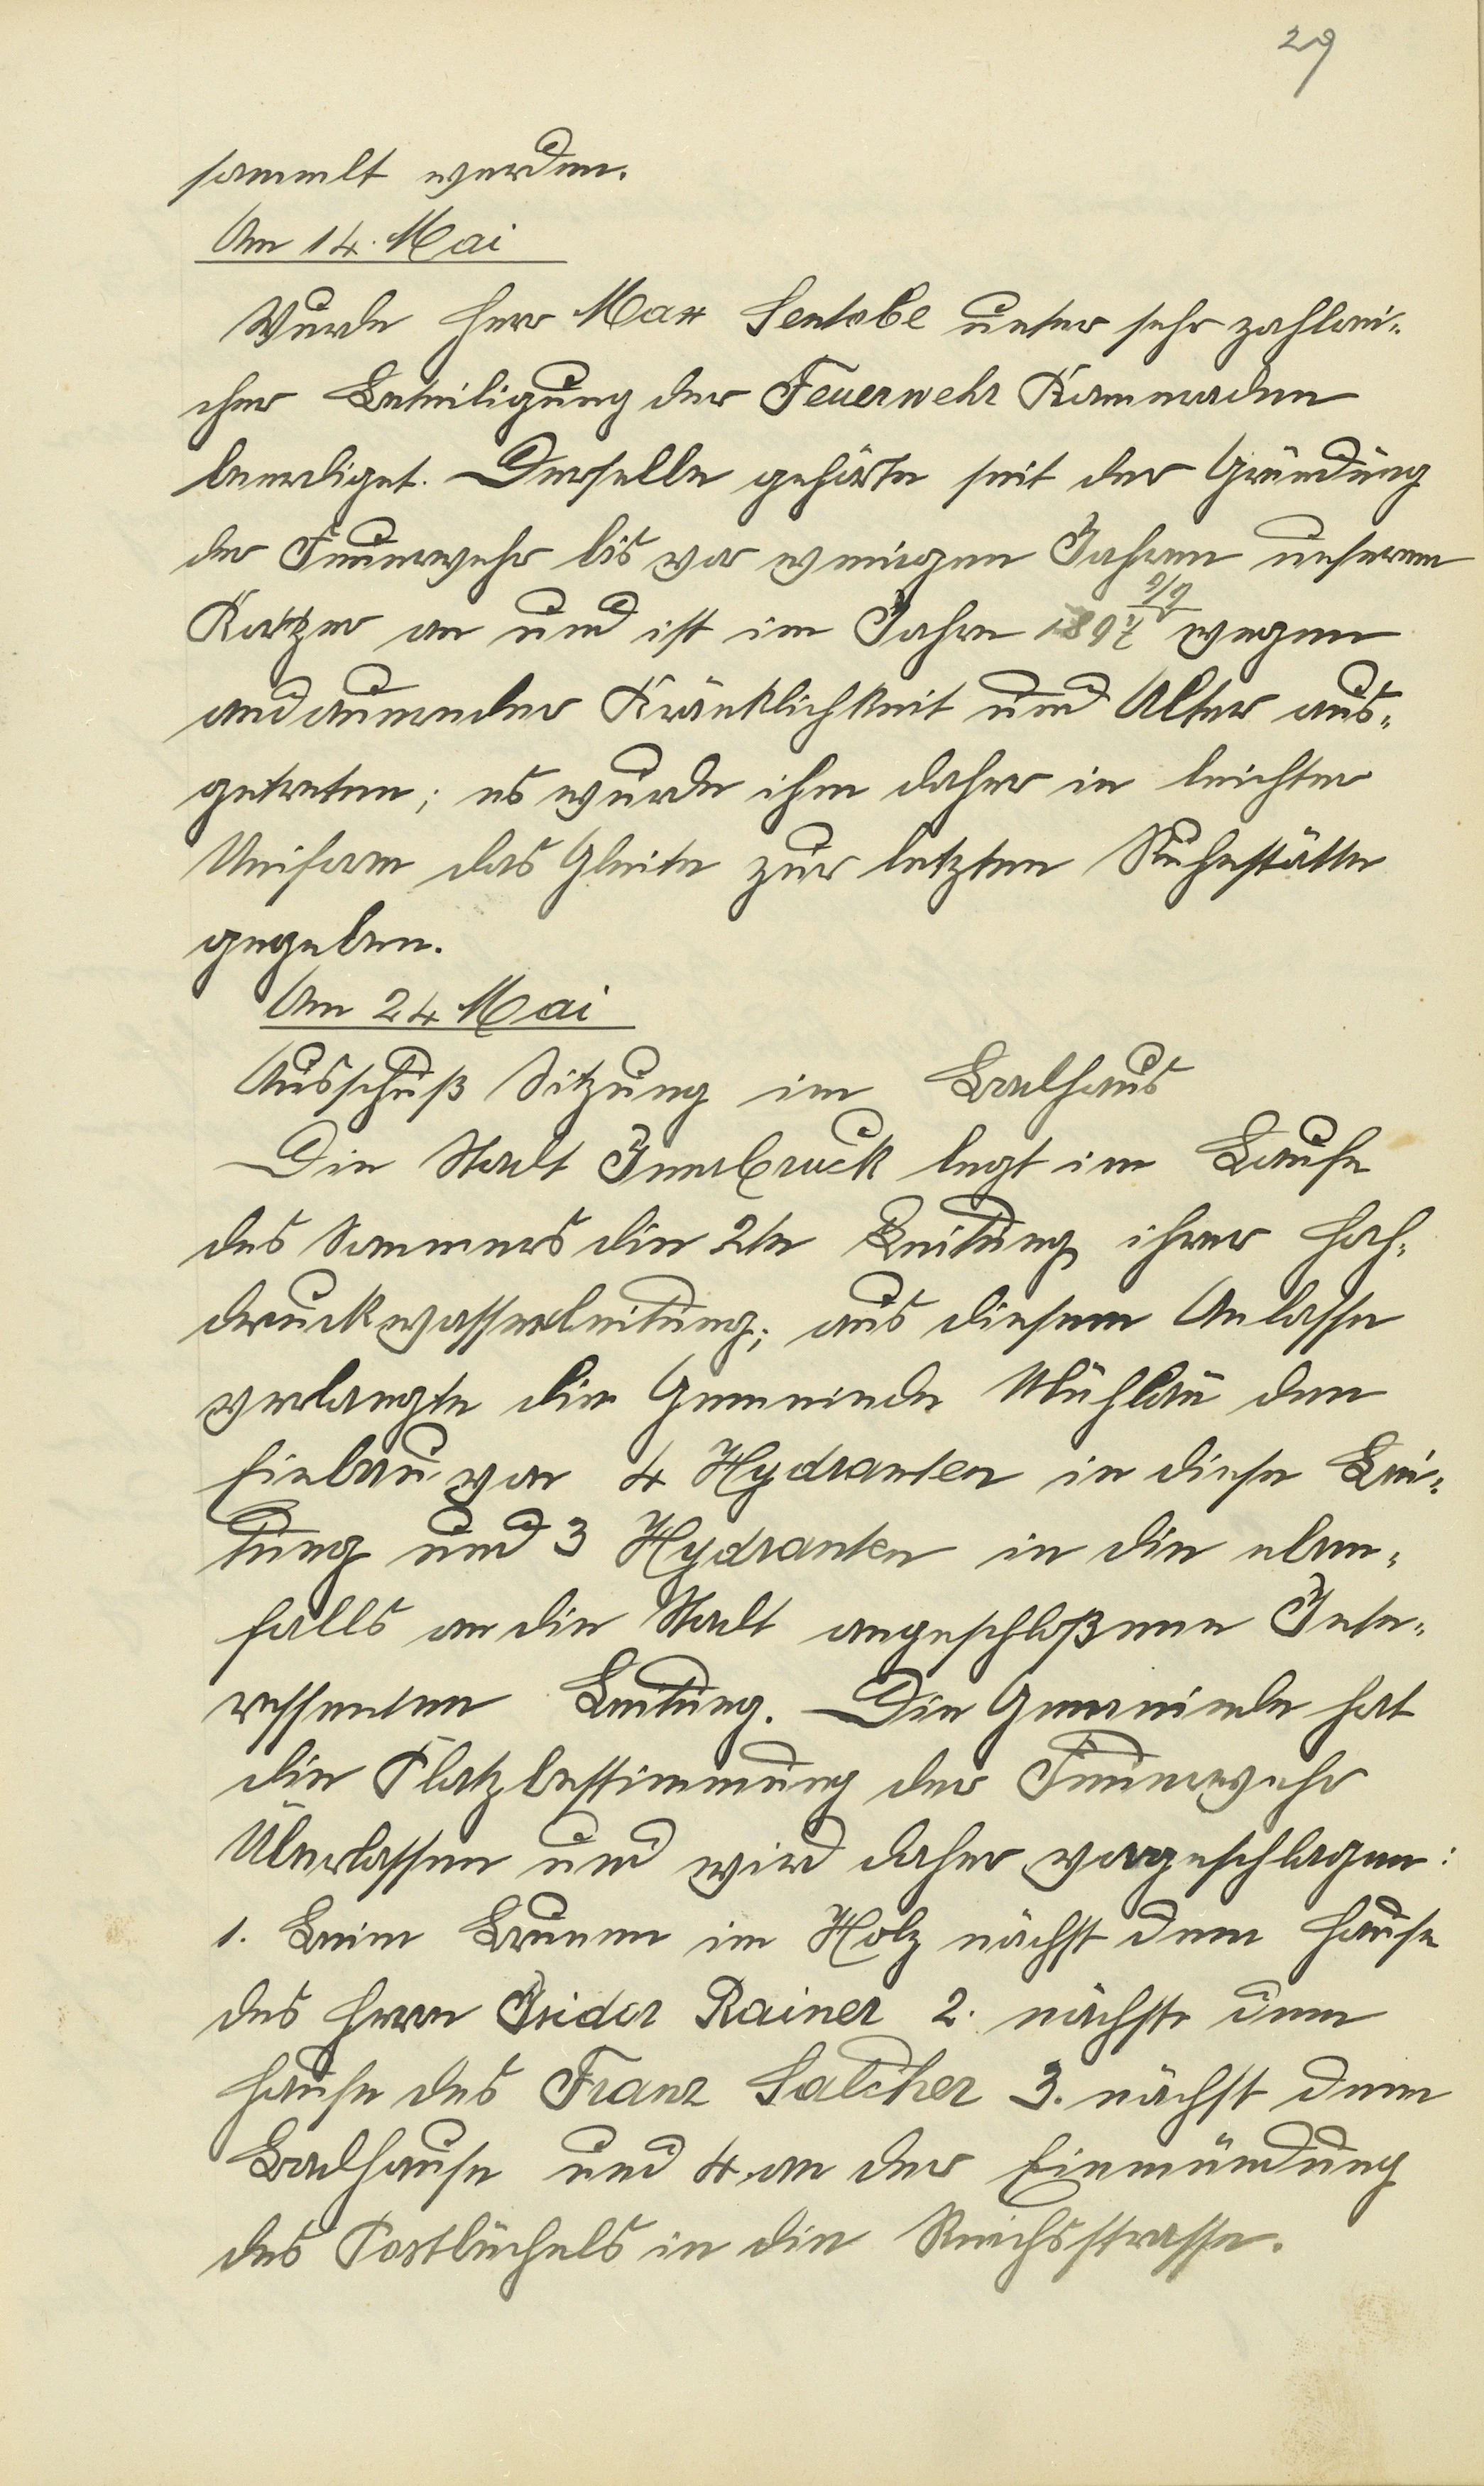 29
sammelt werden.
Am 14. Mai
Wurde Herr Max Sentobe unter sehr zahlrei-
cher Beteiligung der Feuerwehr Kammeraden
beerdiget. Derselbe gehörte seit der Gründung
der Feuerwehr bis vor wenigen Jahren unserem
Korper an und ist im Jahre wegen
andauernder Kränklichkeit und Alter aus-
getreten; es wurde ihm daher in leichter
Uniform das Gleite zur letzten Ruhestätte
gegeben.
Am 24 Mai
Ausschuß Sitzung im Badhaus
Die Stadt Innsbruck legt im Laufe
des Sommers die 2te Leitung ihrer Hoch-
druckwasserleitung; aus diesem Anlasse
verlangte die Gemeinde Mühlau den
Einbau von 4 Hydranten in diese Lei-
tung und 3 Hydranten in die eben-
falls an die Stadt angeschloßene Inte-
ressenten Leitung. Die Gemeinde hat
die Platzbestimmung der Feuerwehr
Überlassen und wird daher vorgeschlagen:
1. Beim Brunnen im Holz nächst dem Hause
des Herrn Isidor Rainer 2. nächst dem
Hause des Franz Salcher 3. nächst dem
Badhause und 4. an der Einmündung
des Postbüchels in die Reichsstrasse.